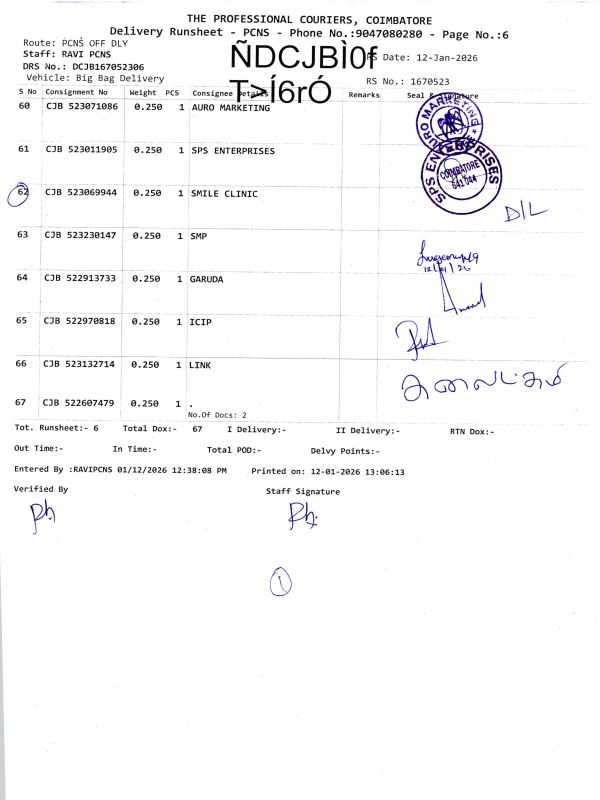 THE PROFESSIONAL COURIERS, COIMBATORE
Delivery Runsheet - PCNS - Phone No.:9047080280 - Page No.:6
Route: PCNS OFF DLY
Staff: RAVI PCNS
ÑDCJBÌ0f
RS Date: 12-Jan-2026
DRS No.: DCJB167052306
T>Í6rÓ
Vehicle: Big Bag Delivery
RS No.: 1670523
S No Consignment No Weight PCS Consignee Details Remarks Seal & Signature
60 CJB 523071086 0.250 1 AURO MARKETING
AURO MARKETING
61 CJB 523011905 0.250 1 SPS ENTERPRISES
SPS ENTERPRISES
COIMBATORE
641 044
62 CJB 523069944 0.250 1 SMILE CLINIC
D/L
63 CJB 523230147 0.250 1 SMP
12/01/26
64 CJB 522913733 0.250 1 GARUDA
Anand
65 CJB 522970818 0.250 1 ICIP
66 CJB 523132714 0.250 1 LINK
67 CJB 522607479 0.250 1 .
No.Of Docs: 2
Tot. Runsheet:- 6 Total Dox:- 67 I Delivery:- II Delivery:- RTN Dox:-
Out Time:- In Time:- Total POD:- Delvy Points:-
Entered By :RAVIPCNS 01/12/2026 12:38:08 PM Printed on: 12-01-2026 13:06:13
Verified By Staff Signature
1